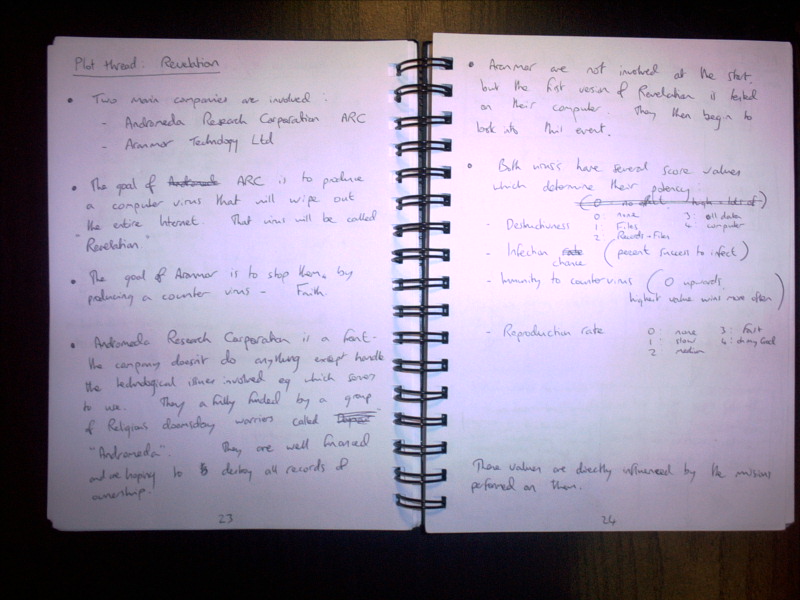 Plot thread: Revelation
• Two main companies are involved:
- Andromeda Research Corporation ARC
- Arunmor Technology Ltd
• The goal of ARC is to produce
a computer virus that will wipe out
the entire Internet. That virus will be called
"Revelation."
• The goal of Arunmor is to stop them, by
producing a counter virus - Faith.
• Andromeda Research Corporation is a front -
the company doesn't do anything except handle
the technological issues involved eg which servers
to use. They a fully funded by a group
of Religious doomsday worriers called
"Andromeda". They are well financed
and are hoping to destroy all records of
ownership.
23
• Arunmor are not involved at the start,
but the first version of Revelation is tested
on their computer. They then begin to
look into this event.
• Both virus's have several score values
which determine their potency:
(0 no effect high = lots of)
- Destructiveness 0: none 3: all data
1: Files 4: computer
2: Records + Files
- Infection chance (percent success to infect)
- Immunity to countervirus (0 upwards,
highest value wins more often)
- Reproduction rate 0: none 3: Fast
1: slow 4: oh my God
2: medium
These values are directly influenced by the missions
performed on them.
24